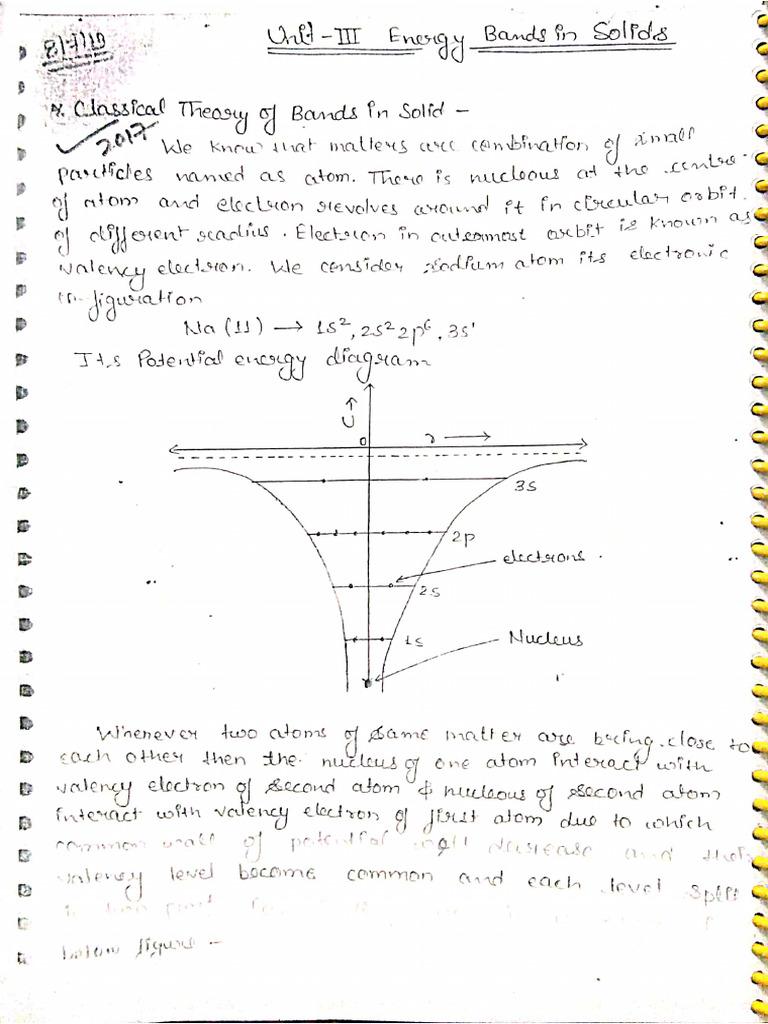 8/7/19
Unit-III Energy Bands in Solids
* Classical Theory of Bands in Solid -
2017
We know that matters are combination of small
particles named as atom. There is nucleous at the centre
of atom and electron revolves around it in circular orbit
of different radius. Electron in outermost orbit is known as
valency electron. We consider sodium atom its electronic
configuration
Na (11) → 1s², 2s² 2p⁶, 3s¹
Its Potential energy diagram
U
0
r
3s
2p
electrons
2s
1s
Nucleus
Whenever two atoms of same matter are being close to
each other then the nucleus of one atom interact with
valency electron of second atom & nucleous of second atom
interact with valency electron of first atom due to which
common wall of potential well decrease and their
valency level become common and each level split
in two part
below figure -